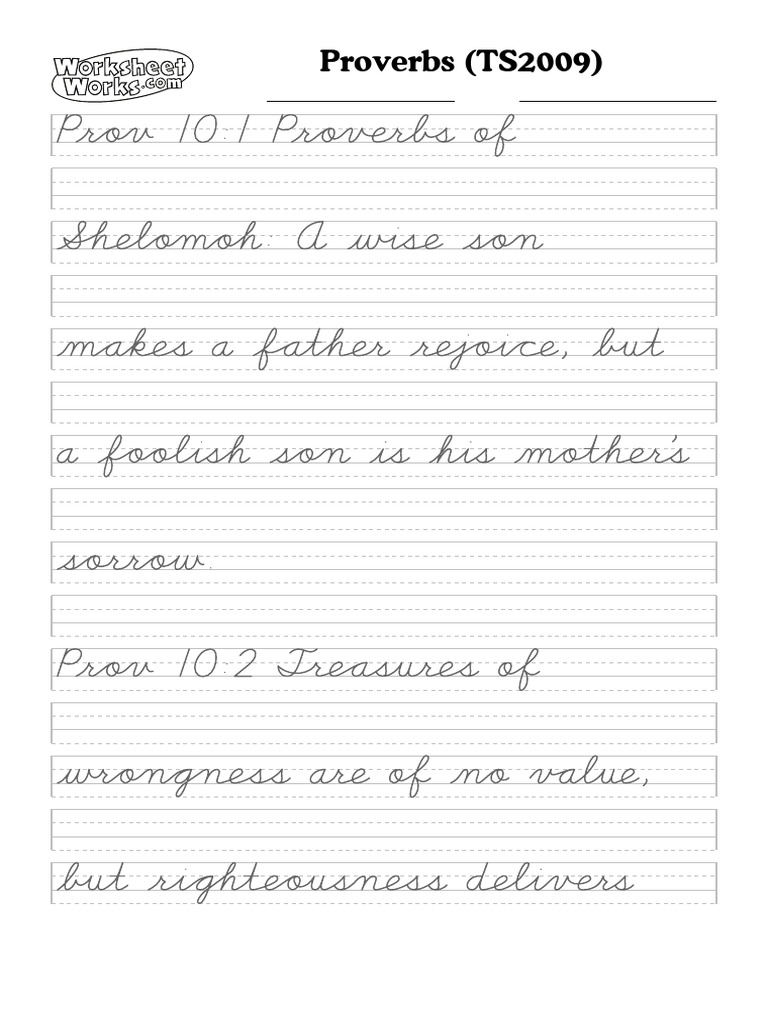 Worksheet
Works.com
Proverbs (TS2009)
Prov 10:1 Proverbs of
Shelomoh: A wise son
makes a father rejoice, but
a foolish son is his mother's
sorrow.
Prov 10:2 Treasures of
wrongness are of no value,
but righteousness delivers